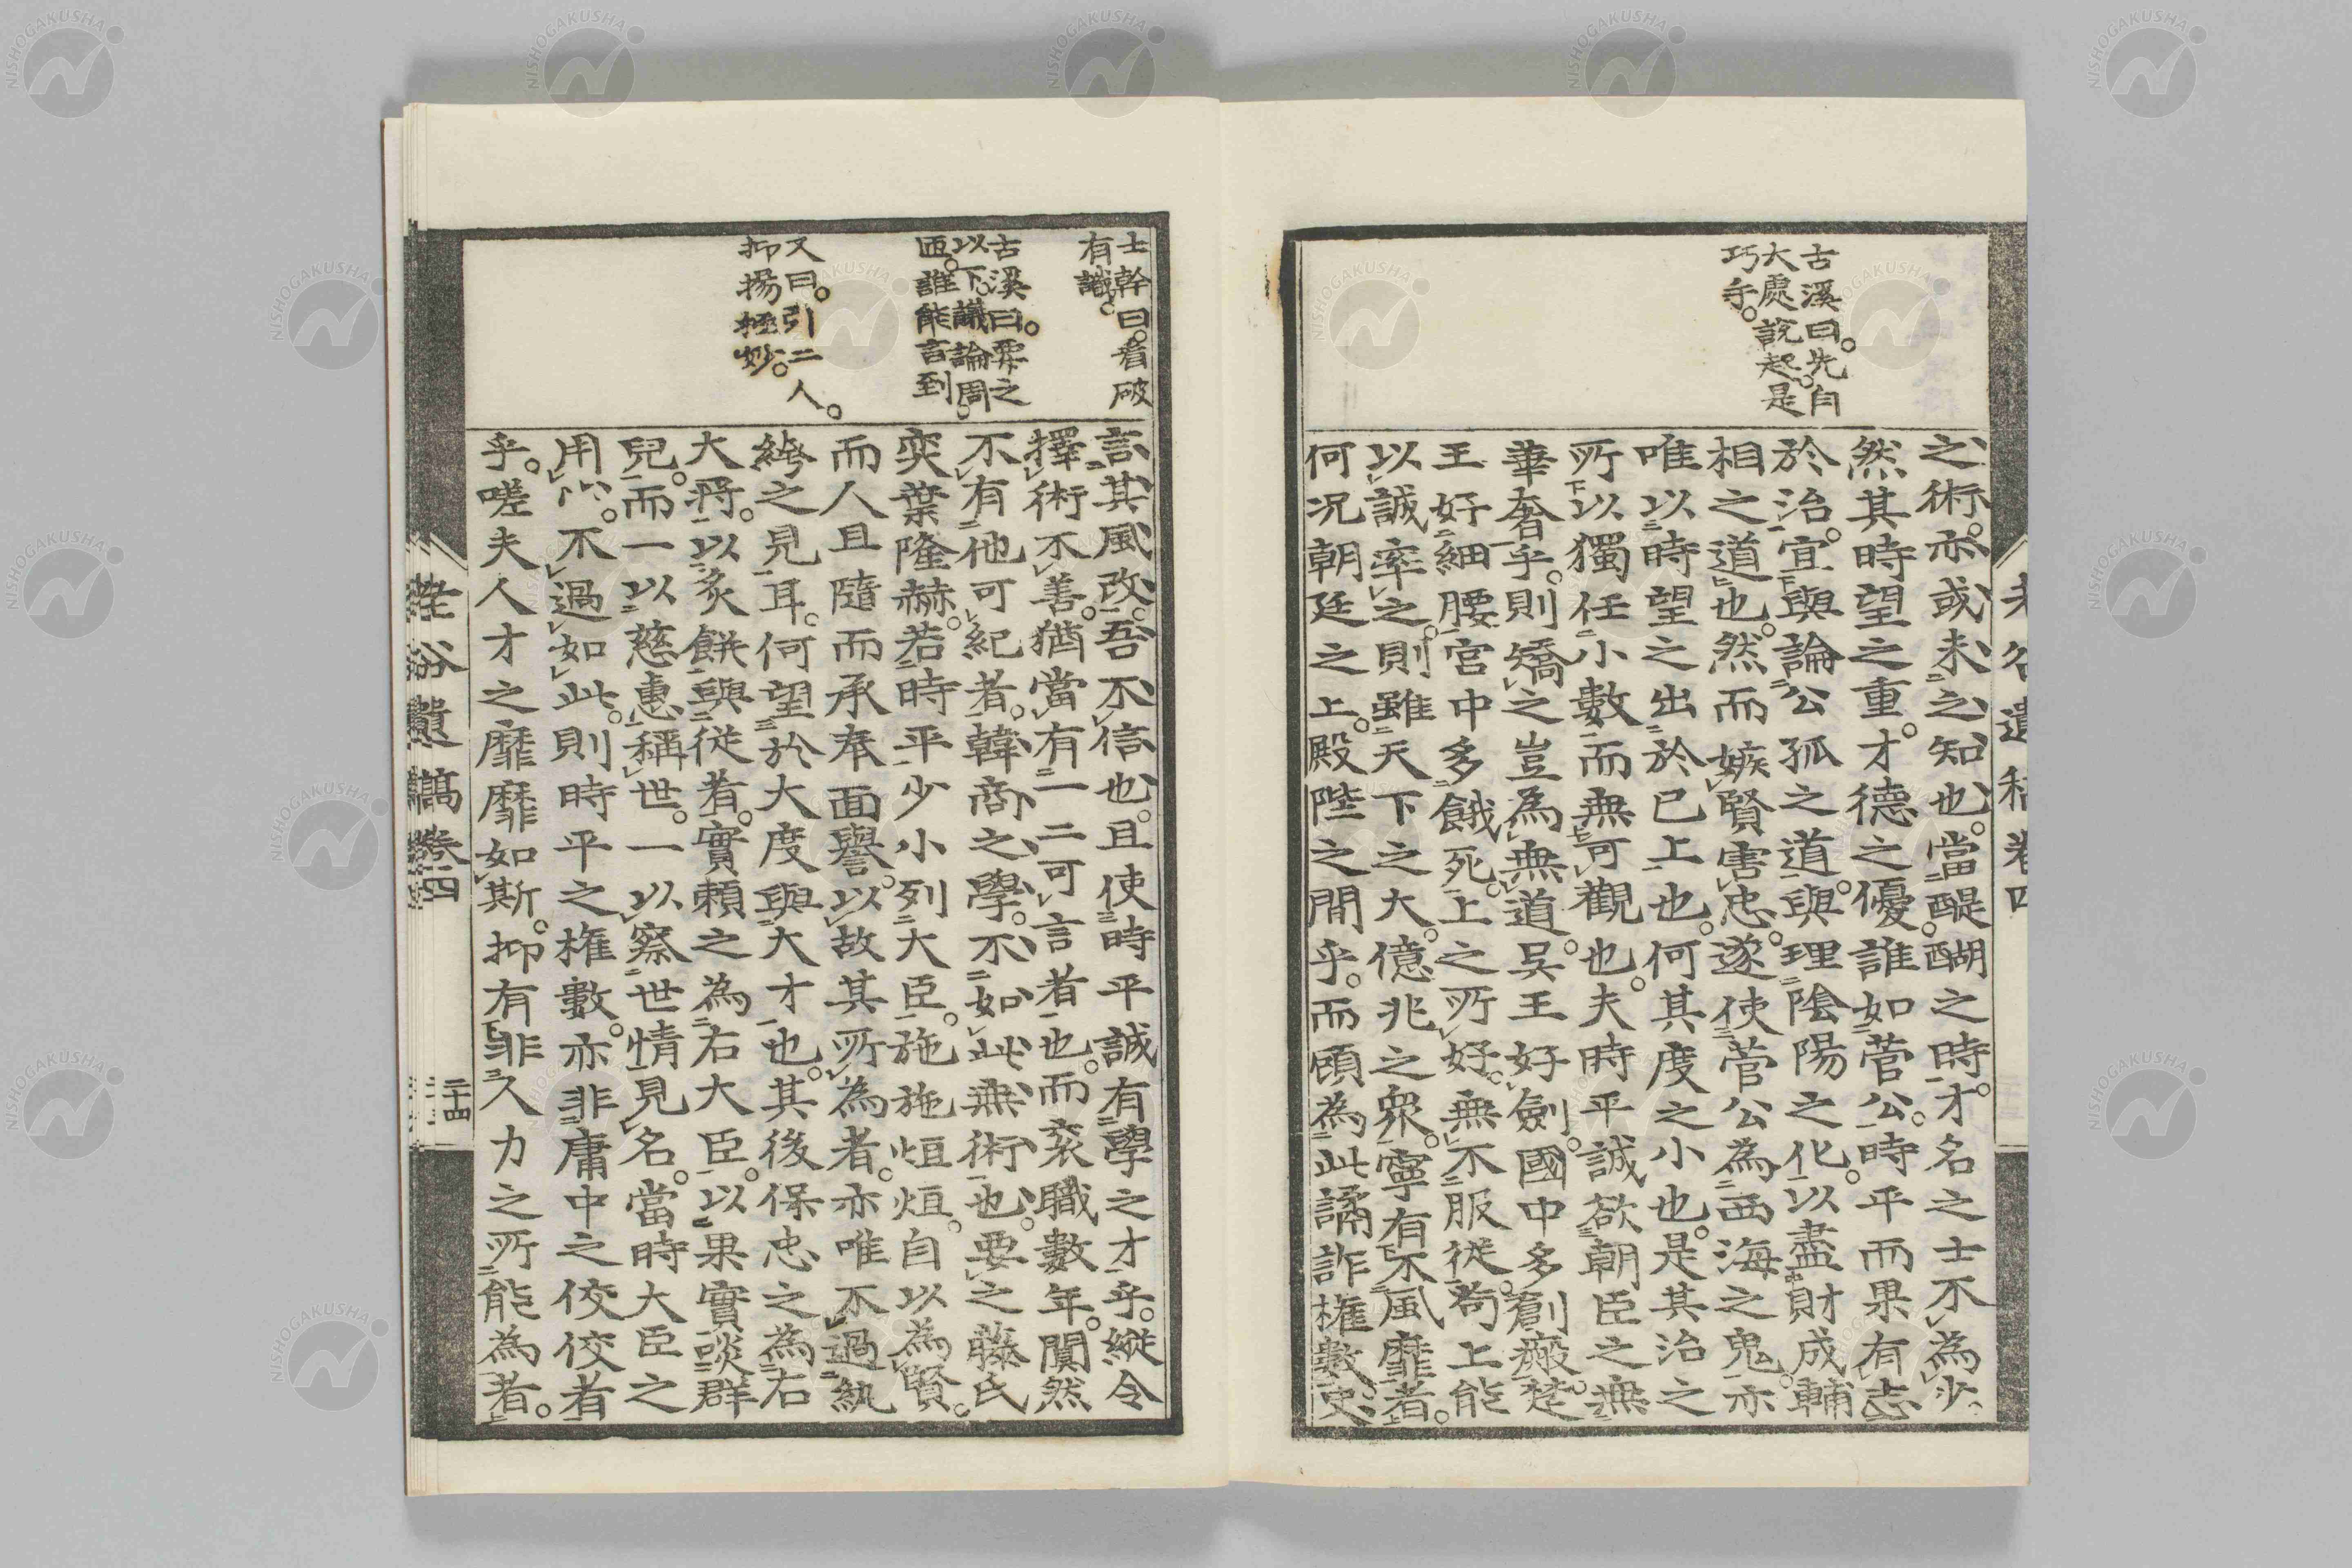 古溪曰。先自
大處說起。是
巧手。
之術。亦或未之知也。當醍醐之時。才名之士不為少。
然其時望之重。才德之優。誰如菅公。時平而果有志
於治。宜與論公孤之道。與理陰陽之化。以盡財成輔
相之道也。然而嫉賢害忠。遂使菅公為西海之鬼。亦
唯以時望之出於己上也。何其度之小也。是其治之
所以獨任小數而無可觀也。夫時平誠欲朝臣之無
華奢乎。則矯之豈為無道。吳王好劍。國中多創瘢。楚
王好細腰。宮中多餓死。上之所好。無不服從。苟上能
以誠率之。則雖天下之大。億兆之眾。寧有不風靡者。
何況朝廷之上。殿陛之間乎。而頎為此譎詐權數。史
士幹曰。看破
有識。
古溪曰。要之
以下。議論周
匝。誰能言到
又曰。引二人。
抑揚極妙。
言其風改。吾不信也。且使時平誠有學之才乎。縱令
擇術不善。猶當有一二可言者也。而袞職數年。闃然
不有他可紀者。韓商之學。不如此無術也。要之藤氏
奕葉隆赫。若時平少小列大臣。施施烜烜。自以為賢。
而人且隨而承奉面譽。以故其所為者。亦唯不過紈
絝之見耳。何望於大度與大才也。其後保忠之為右
大將。以炙餅與從者。實賴之為右大臣。以果實啖群
兒。而一以慈惠稱世。一以察世情見名。當時大臣之
用心。不過如此。則時平之權數。亦非庸中之佼佼者
乎。嗟夫人才之靡靡如斯。抑有非人力之所能為者。
遺稿卷四
二十四